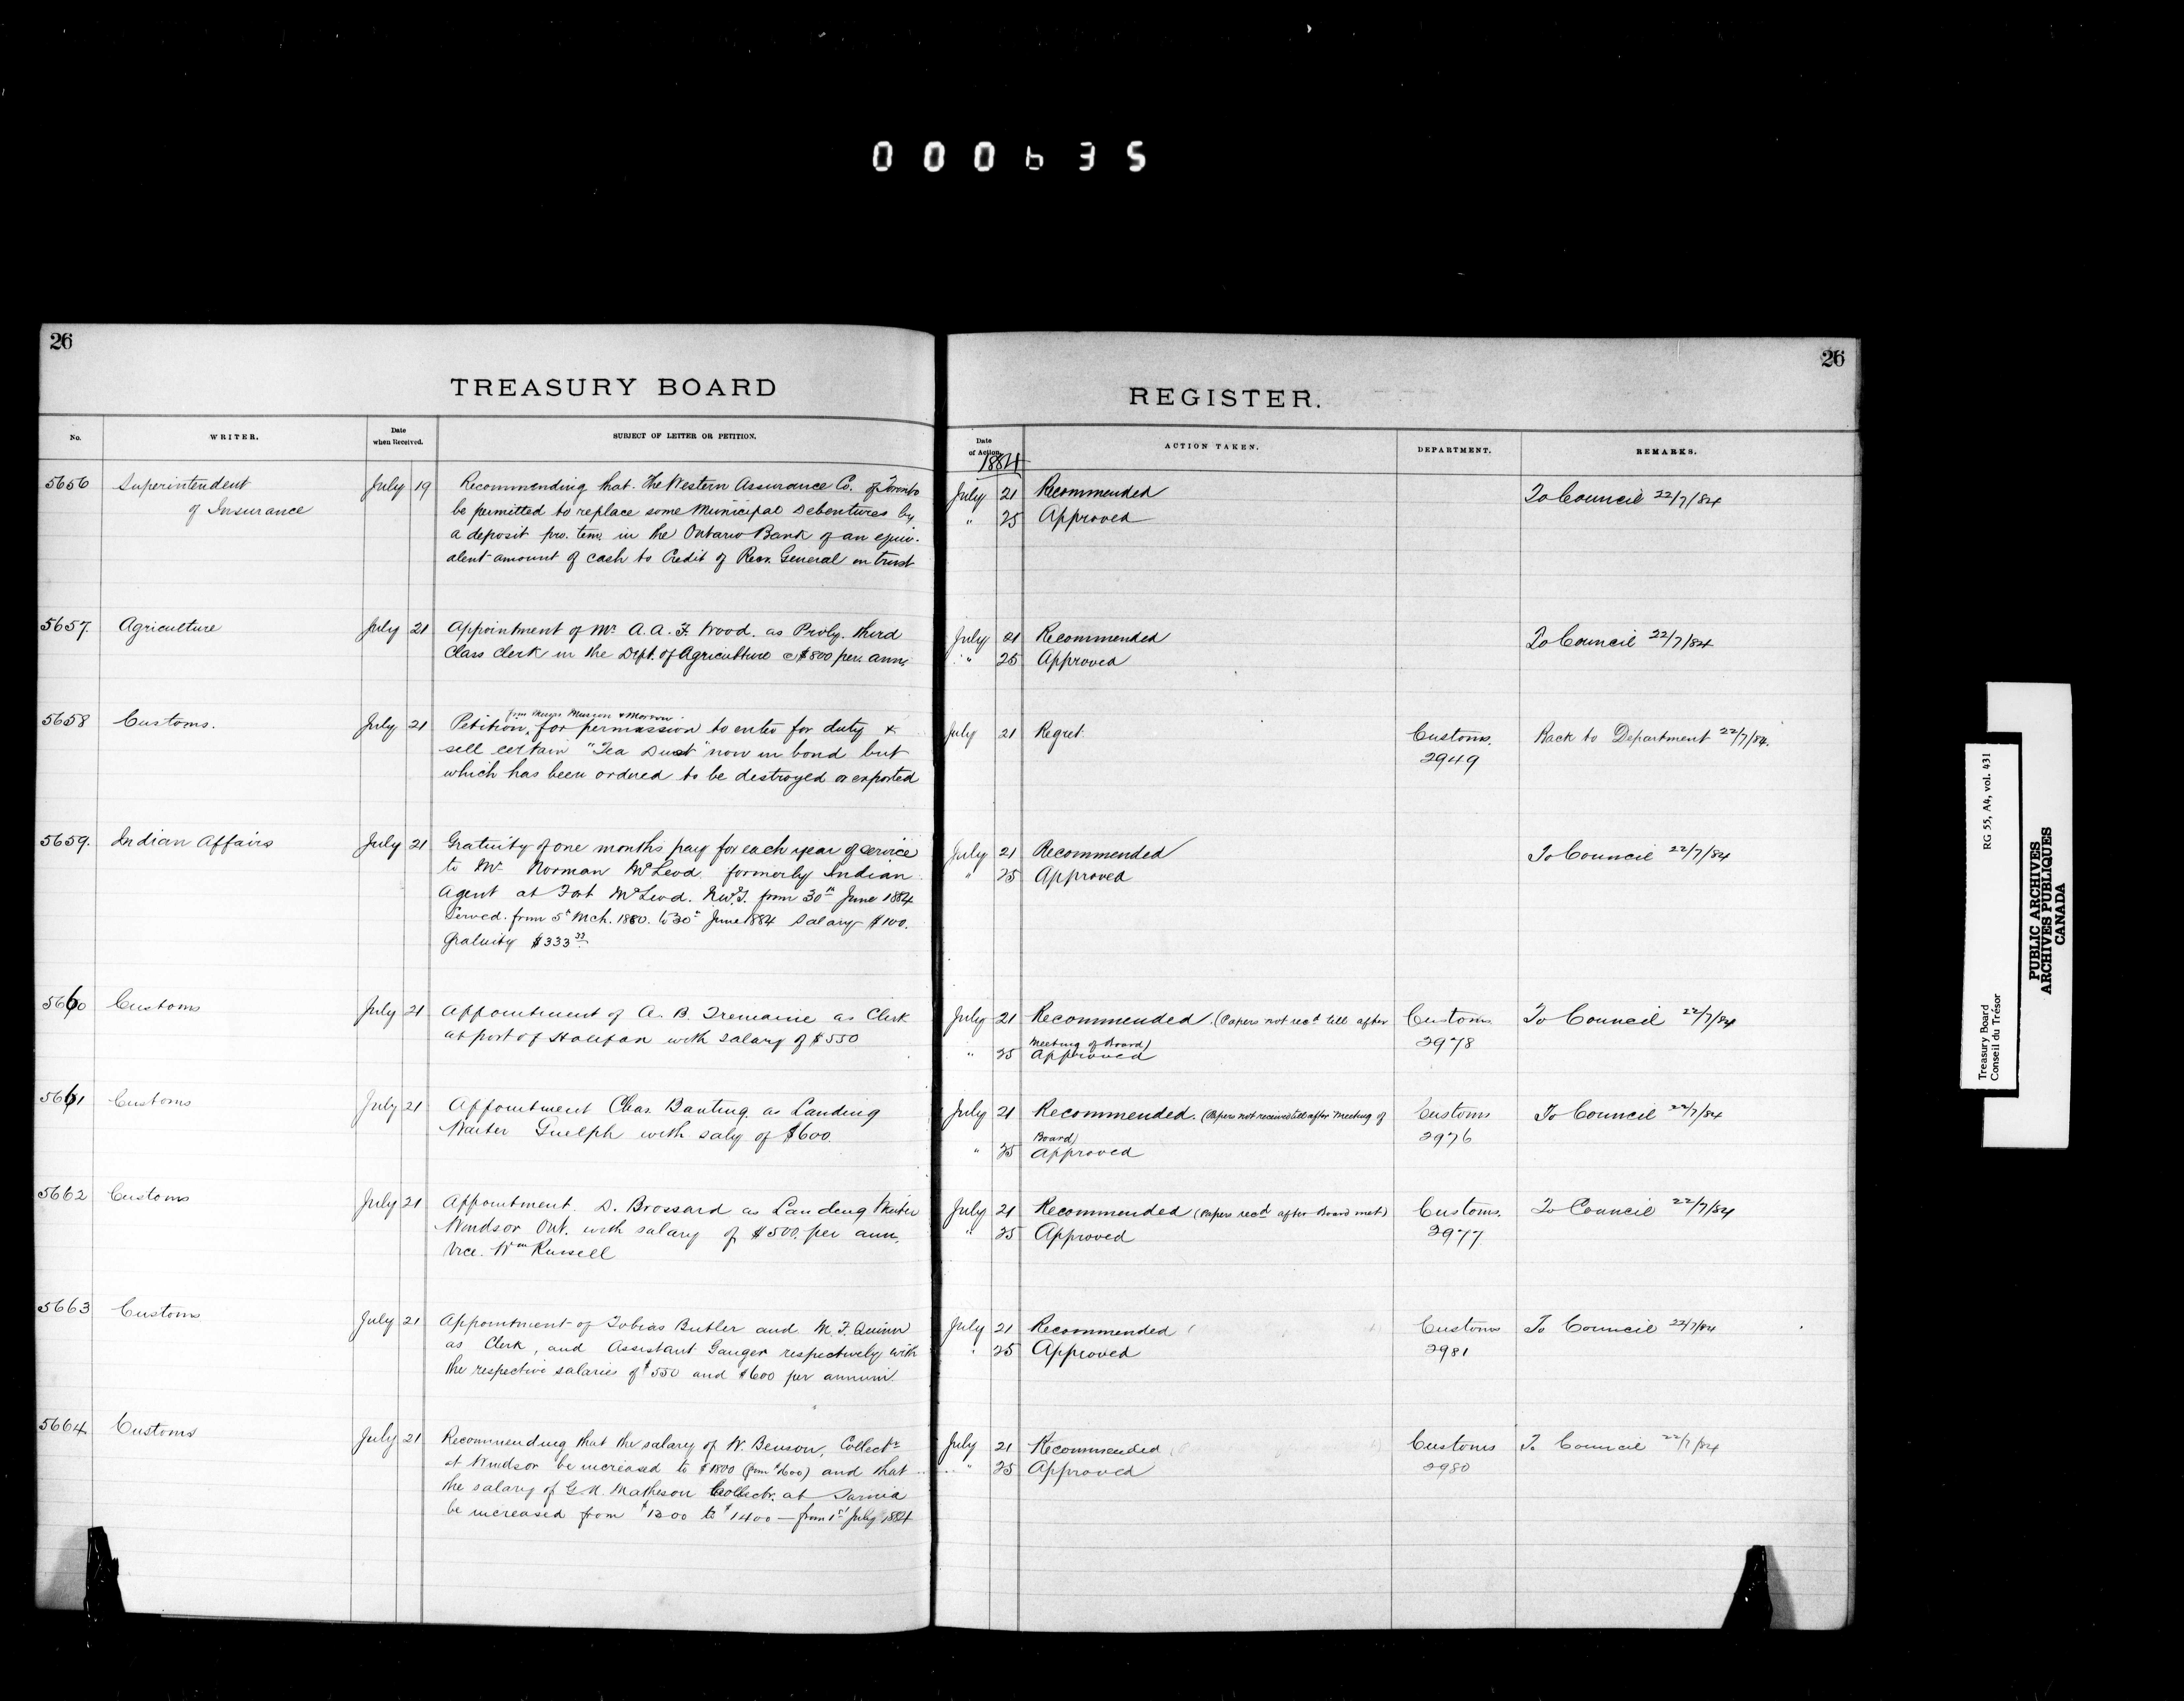 000635
26
TREASURY BOARD
No.
WRITER.
Date
when Received.
SUBJECT OF LETTER OR PETITION.
5656 Superintendent July 19 Recommending that the Western Assurance Co. of Toronto
of Insurance be permitted to replace some Municipal Debentures by
a deposit pro. tem. in the Ontario Bank of an equiv-
alent amount of cash to Credit of Recr. General in trust
5657. Agriculture July 21 Appointment of Mr. A. A. F. Wood. as Proby. third
Class clerk in the Dept. of Agriculture @ $800 per. ann.
from Messrs
5658 Customs. July 21 Petition, for permission to enter for duty &
sell certain "Tea Dust" now in bond but
which has been ordered to be destroyed or exported
5659. Indian Affairs July 21 Gratuity of one months pay for each year of service
to Mr Norman McLeod formerly Indian
Agent at Fort McLeod. N.W.T. from 30th June 1884
Served. from 5th Mch. 1880. to 30th June 1884 Salary $100.
Gratuity $333 33
5660 Customs July 21 Appointment of A. B. Tremaine as Clerk
at port of Halifax with salary of $550
5661 Customs July 21 Appointment Chas. Banting as Landing
Waiter Guelph with saly of $600.
5662 Customs July 21 Appointment. D. Brossard as Landing Waiter
Windsor Ont. with salary of $500. per ann.
Vice. Wm Russell
5663 Customs July 21 Appointment of Tobias Butler and M. F. Quinn
as Clerk, and Assistant Gauger respectively with
the respective salaries of $550 and $600 per annum.
5664 Customs July 21 Recommending that the salary of W. Benson, Collectr
at Windsor be increased to $1800 (from $1600) and that
the salary of G. M. Matheson Collectr. at Sarnia
be increased from $1200 to $1400 — from 1st July 1884
26
REGISTER.
Date
of Action.
ACTION TAKEN.
DEPARTMENT.
REMARKS.
1884
July 21 Recommended To Council 22/7/84
" 25 Approved
July 21 Recommended To Council 22/7/84
" 25 Approved
July 21 Regret. Customs. Back to Department 22/7/84.
2949
July 21 Recommended To Council 22/7/84
" 25 Approved
July 21 Recommended. (Papers not recd till after Customs To Council 22/7/84
Meeting of Board) 2978
" 25 Approved
July 21 Recommended. (Papers not received till after Meeting of Customs To Council 22/7/84
Board) 2976
" 25 Approved
July 21 Recommended (Papers recd after Board met) Customs. To Council 22/7/84
" 25 Approved 2977
July 21 Recommended Customs To Council 22/7/84
" 25 Approved 2981
July 21 Recommended Customs To Council 22/7/84
" 25 Approved 2980
RG 55, A4, vol. 431
Treasury Board
Conseil du Trésor
PUBLIC ARCHIVES
ARCHIVES PUBLIQUES
CANADA